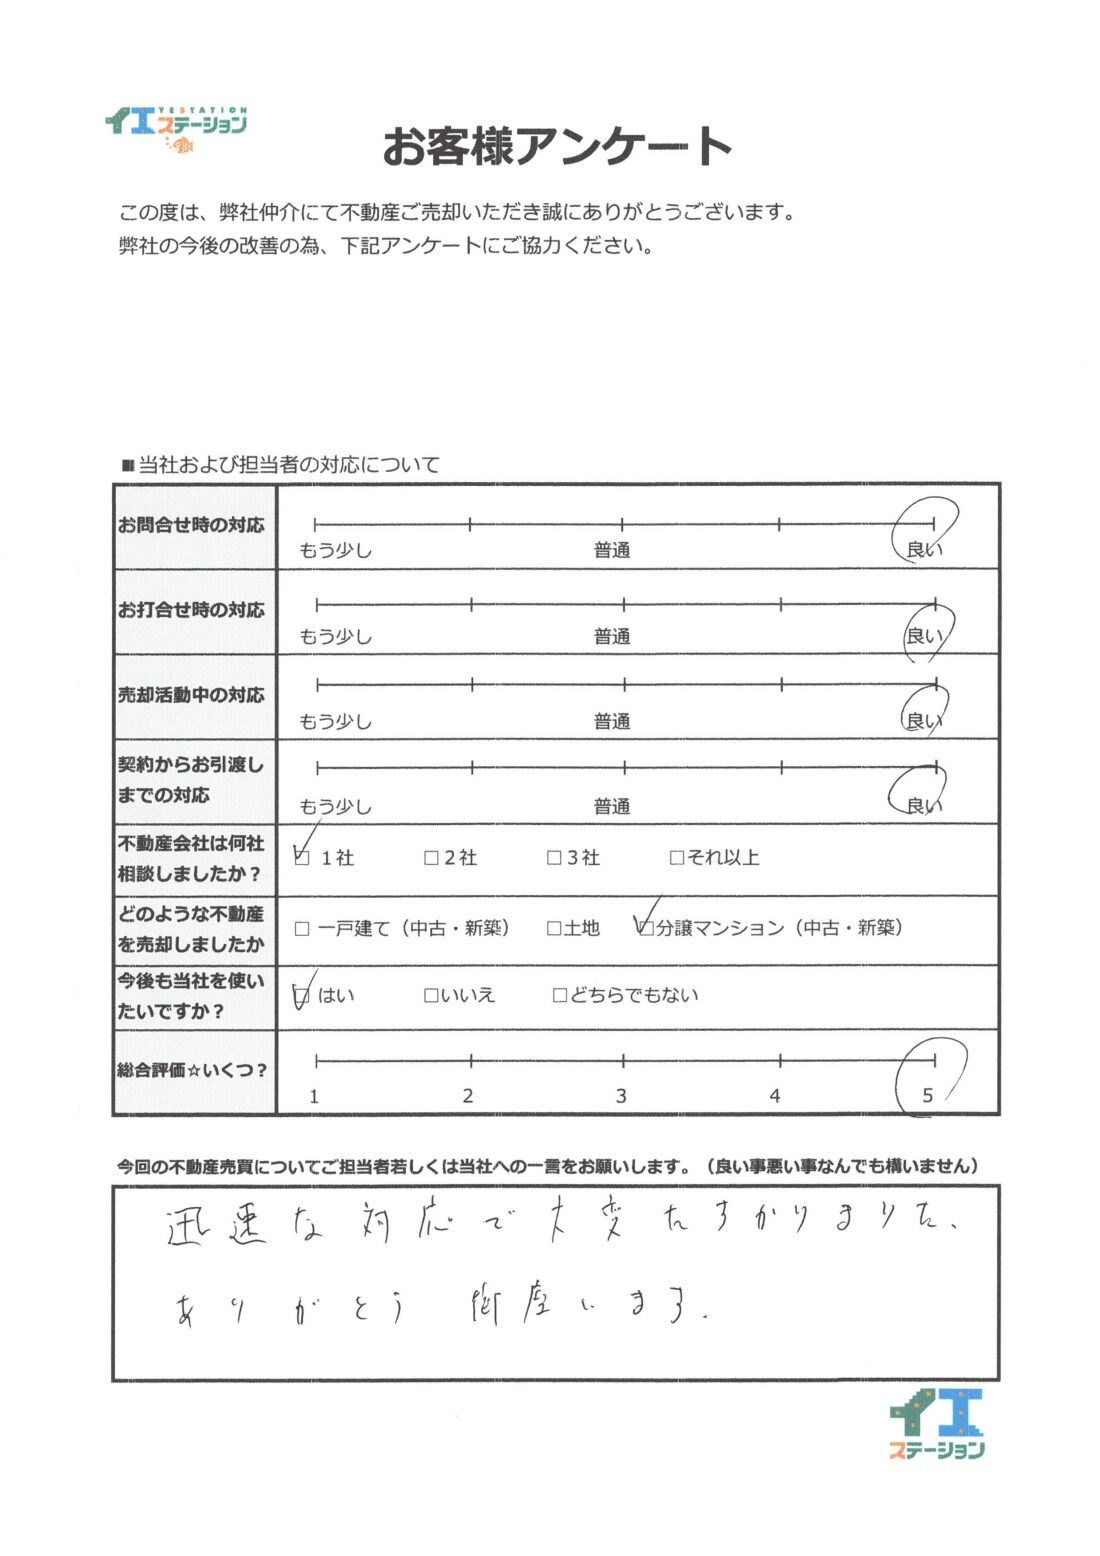 イエステーション
YESTATION
お客様アンケート
この度は、弊社仲介にて不動産ご売却いただき誠にありがとうございます。
弊社の今後の改善の為、下記アンケートにご協力ください。
■当社および担当者の対応について
お問合せ時の対応
もう少し 普通 良い
お打合せ時の対応
もう少し 普通 良い
売却活動中の対応
もう少し 普通 良い
契約からお引渡し
までの対応
もう少し 普通 良い
不動産会社は何社
相談しましたか？
☑ 1社 □2社 □3社 □それ以上
どのような不動産
を売却しましたか
□ 一戸建て（中古・新築） □土地 ☑分譲マンション（中古・新築）
今後も当社を使い
たいですか？
☑ はい □いいえ □どちらでもない
総合評価☆いくつ？
1 2 3 4 5
今回の不動産売買についてご担当者若しくは当社への一言をお願いします。（良い事悪い事なんでも構いません）
迅速な対応で大変たすかりました.
ありがとう御座います.
イエ
ステーション